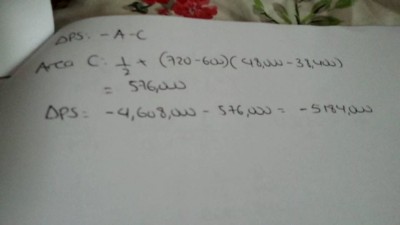 ΔPS: -A-C
Area C: 1/2 * (720-600)(48,000-38,400)
= 576,000
ΔPS = -4,608,000 - 576,000 = -5184,000